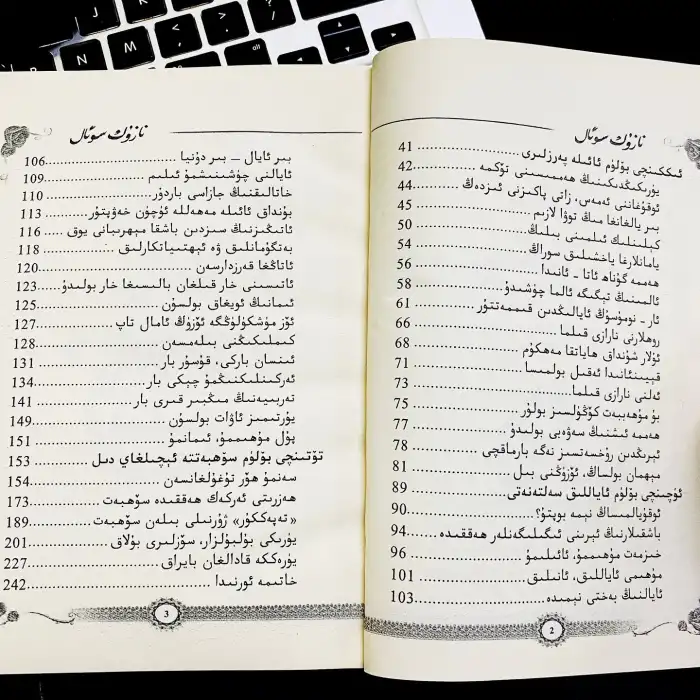 نازۇك سوئال
ئىككىنچى بۆلۈم ئائىلە پەرزلىرى ........ 41
يۈرىكىڭدىكىنىڭ ھەممىسىنى تۆكمە ........ 42
ئوقۇغانى ئەمەس، زاتى پاكىزنى ئىزدەڭ ........ 44
بىر يالغانغا مىڭ توۋا لازىم ........ 45
كېلىنلىك ئىلمىنى بىلىڭ ........ 50
يامانلارغا ياخشىلىق سوراڭ ........ 54
ھەممە گۇناھ ئاتا - ئانىدا ........ 56
ئالمىنىڭ تېگىگە ئالما چۈشىدۇ ........ 58
ئار - نومۇسۇڭ ئايالىڭدىن قىممەتتۇر ........ 61
روھلارنى نارازى قىلما ........ 66
ئۇلار شۇنداق ھاياتقا مەھكۇم ........ 68
قېيىنئانىدا ئەقىل بولمىسا ........ 71
ئەلنى نارازى قىلما ........ 73
بۇ مۇھەببەت كۆڭۈلسىز بولۇر ........ 75
ھەممە ئىشنىڭ سەۋەبى بولىدۇ ........ 77
ئېرىڭدىن رۇخسەتسىز نەگە بارماقچى ........ 78
مېھمان بولساڭ، ئۆزۈڭنى بىل ........ 81
ئۈچىنچى بۆلۈم ئاياللىق سەلتەنەتى ........ 89
ئوقۇيالمىساڭ نېمە بوپتۇ؟ ........ 90
باشقىلارنىڭ ئېرىنى ئىگىلىگەنلەر ھەققىدە ........ 94
خىزمەت مۇھىممۇ، ئائىلىمۇ ........ 96
مۇھىمى ئاياللىق، ئانىلىق ........ 101
ئايالنىڭ بەختى نېمىدە ........ 103
2
نازۇك سوئال
بىر ئايال – بىر دۇنيا ........ 106
ئايالنى چۈشىنىشمۇ ئىلىم ........ 109
خاتالىقنىڭ جازاسى باردۇر ........ 110
بۇنداق ئائىلە مەھەللە ئۈچۈن خەۋپتۇر ........ 113
ئاتىڭىزنىڭ سىزدىن باشقا مېھرىبانى يوق ........ 116
بەتگۇمانلىق ۋە ئېھتىياتكارلىق ........ 118
ئاتاڭغا قەرزدارسەن ........ 120
ئاتىسىنى خار قىلغان بالىسىغا خار بولىدۇ ........ 123
ئىمانىڭ ئويغاق بولسۇن ........ 125
ئۆز مۈشكۈلۈڭگە ئۆزۈڭ ئامال تاپ ........ 127
كىملىكىڭنى بىلەمسەن ........ 128
ئىنسان باركى، قۇسۇر بار ........ 131
ئەركىنلىكنىڭمۇ چېكى بار ........ 134
تەربىيەنىڭ مىڭبىر قىرى بار ........ 141
يۇرتىمىز ئاۋات بولسۇن ........ 149
پۇل مۇھىممۇ، ئىمانمۇ ........ 151
تۆتىنچى بۆلۈم سۆھبەتتە ئېچىلغاي دىل ........ 153
سەنمۇ ھۆر تۇغۇلغانسەن ........ 154
ھەزرىتى ئەركەك ھەققىدە سۆھبەت ........ 173
«تەپەككۇر» ژۇرنىلى بىلەن سۆھبەت ........ 189
يۈرىكى بۇلبۇلزار، سۆزلىرى بۇلاق ........ 201
يۈرەككە قادالغان بايراق ........ 227
خاتىمە ئورنىدا ........ 242
3